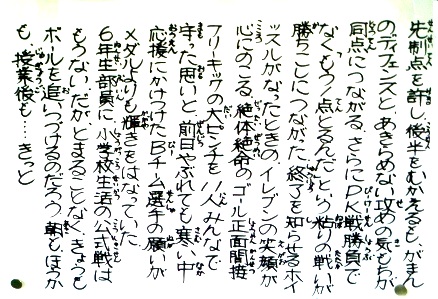 先制点を許し、後半をむかえるも、がまん
のディフェンスと、あきらめない攻めの気もちが
同点につながる。さらにPK戦勝負で
なくもう1点とるんだという粘りの戦いが
勝ちこしにつながった。終了を知らせるホイ
ッスルがなったときのイレブンの笑顔が
心にのこる。絶体絶命のゴール正面間接
フリーキックの大ピンチを11人みんなで
守った思いと、前日やぶれても寒い中
応援にかけつけたBチーム選手の願いが
メダルよりも輝きをはなっていた。
6年生部員に小学校生活の公式戦は
もうない。だがとまることなく、きょうも
ボールを追いつづけるのだろう。朝も、ほうか
も、授業後も…きっと